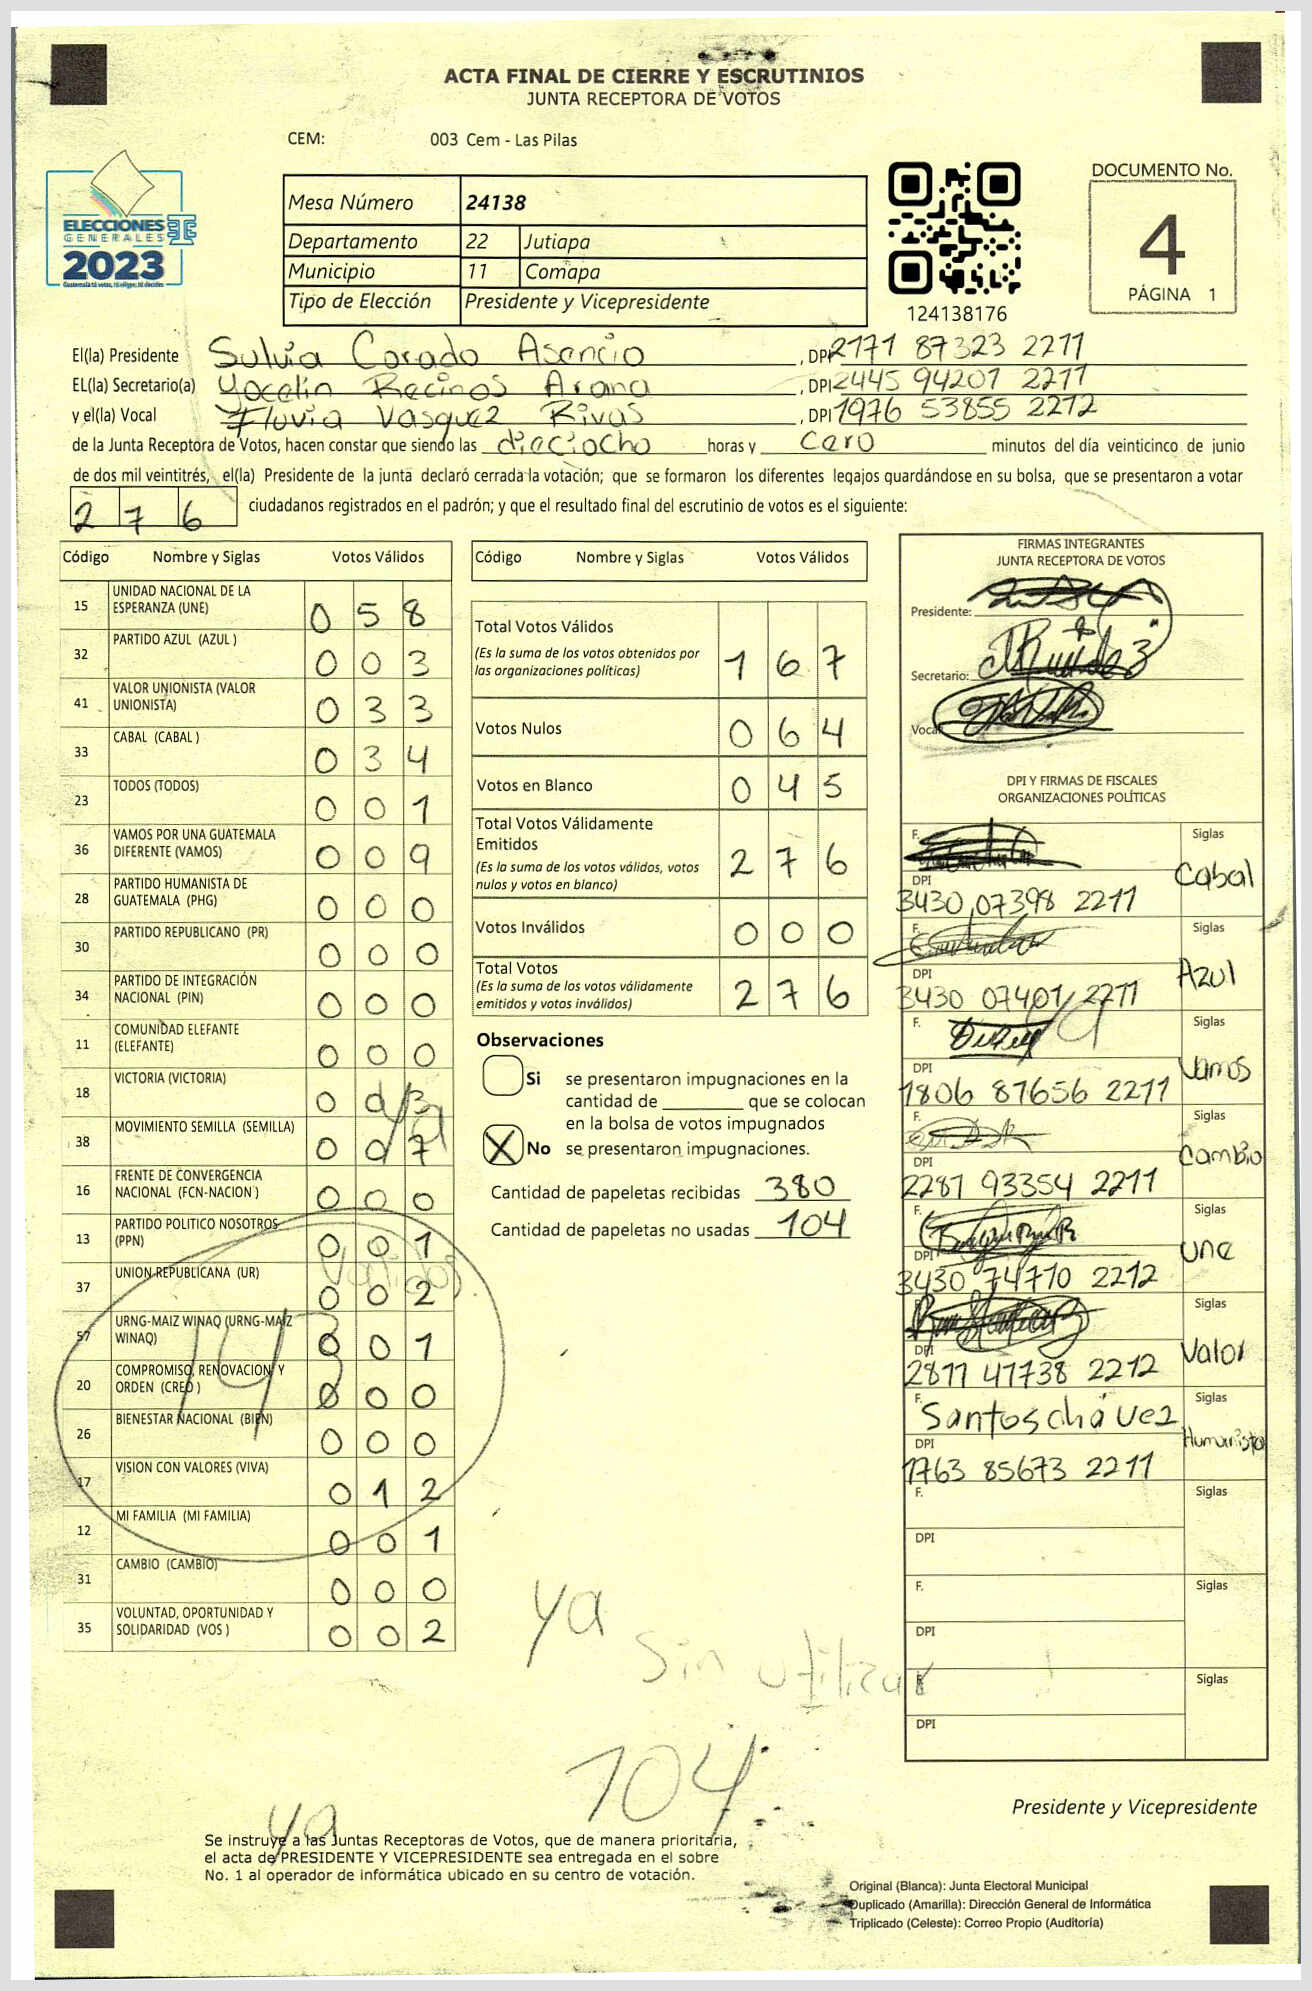 ACTA FINAL DE CIERRE Y ESCRUTINIOS
JUNTA RECEPTORA DE VOTOS
CEM: 003 Cem - Las Pilas
ELECCIONES
GENERALES
2023
Guatemala tú votas, tú eliges, tú decides
Mesa Número 24138
Departamento 22 Jutiapa
Municipio 11 Comapa
Tipo de Elección Presidente y Vicepresidente
124138176
DOCUMENTO No.
4
PÁGINA 1
El(la) Presidente Sulvia Corado Asencio, DPI 2171 87323 2211
EL(la) Secretario(a) Yocelin Recinos Arana, DPI 2445 94201 2211
y el(la) Vocal Fluvia Vasquez Rivas, DPI 1976 53855 2212
de la Junta Receptora de Votos, hacen constar que siendo las dieciocho horas y cero minutos del día veinticinco de junio
de dos mil veintitrés, el(la) Presidente de la junta declaró cerrada la votación; que se formaron los diferentes legajos guardándose en su bolsa, que se presentaron a votar
276 ciudadanos registrados en el padrón; y que el resultado final del escrutinio de votos es el siguiente:
Código Nombre y Siglas Votos Válidos
15 UNIDAD NACIONAL DE LA ESPERANZA (UNE) 058
32 PARTIDO AZUL (AZUL ) 003
41 VALOR UNIONISTA (VALOR UNIONISTA) 033
33 CABAL (CABAL ) 034
23 TODOS (TODOS) 001
36 VAMOS POR UNA GUATEMALA DIFERENTE (VAMOS) 009
28 PARTIDO HUMANISTA DE GUATEMALA (PHG) 000
30 PARTIDO REPUBLICANO (PR) 000
34 PARTIDO DE INTEGRACIÓN NACIONAL (PIN) 000
11 COMUNIDAD ELEFANTE (ELEFANTE) 000
18 VICTORIA (VICTORIA) 003
38 MOVIMIENTO SEMILLA (SEMILLA) 007
16 FRENTE DE CONVERGENCIA NACIONAL (FCN-NACION ) 000
13 PARTIDO POLITICO NOSOTROS (PPN) 001
37 UNION REPUBLICANA (UR) 002
57 URNG-MAIZ WINAQ (URNG-MAIZ WINAQ) 001
20 COMPROMISO, RENOVACION Y ORDEN (CREO ) 000
26 BIENESTAR NACIONAL (BIEN) 000
17 VISION CON VALORES (VIVA) 012
12 MI FAMILIA (MI FAMILIA) 001
31 CAMBIO (CAMBIO) 000
35 VOLUNTAD, OPORTUNIDAD Y SOLIDARIDAD (VOS ) 002
Código Nombre y Siglas Votos Válidos
Total Votos Válidos 167
(Es la suma de los votos obtenidos por
las organizaciones políticas)
Votos Nulos 064
Votos en Blanco 045
Total Votos Válidamente
Emitidos 276
(Es la suma de los votos válidos, votos
nulos y votos en blanco)
Votos Inválidos 000
Total Votos 276
(Es la suma de los votos válidamente
emitidos y votos inválidos)
Observaciones
Si se presentaron impugnaciones en la
cantidad de ________ que se colocan
en la bolsa de votos impugnados
X No se presentaron impugnaciones.
Cantidad de papeletas recibidas 380
Cantidad de papeletas no usadas 104
FIRMAS INTEGRANTES
JUNTA RECEPTORA DE VOTOS
Presidente:
Secretario:
Vocal
DPI Y FIRMAS DE FISCALES
ORGANIZACIONES POLÍTICAS
F. Siglas Cabal
DPI 3430 07398 2211
F. Siglas Azul
DPI 3430 07401 2211
F. Siglas Vamos
DPI 1806 87656 2211
F. Siglas Cambio
DPI 2281 93354 2211
F. Siglas une
DPI 3430 74770 2212
F. Siglas Valor
DPI 2811 47738 2212
F. Santos chávez Siglas Humanista
DPI 1763 85673 2211
F. Siglas
DPI
F. Siglas
DPI
F. Siglas
DPI
ya
143
ya
Sin utilizar
104
ya
Presidente y Vicepresidente
Se instruye a las Juntas Receptoras de Votos, que de manera prioritaria,
el acta de PRESIDENTE Y VICEPRESIDENTE sea entregada en el sobre
No. 1 al operador de informática ubicado en su centro de votación.
Original (Blanca): Junta Electoral Municipal
Duplicado (Amarilla): Dirección General de Informática
Triplicado (Celeste): Correo Propio (Auditoría)